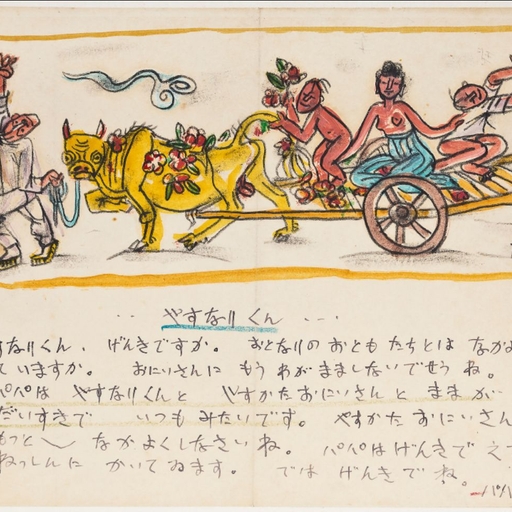 ‥ やすなりくん ‥・
すなりくん、げんきですか。おとなりのおともたちとは なか
ていますか。おにいさんに もう わがまましないでせうね。
パパは やすなりくんと やすかたおにいさんと ままが
だいすきで いつも みたいです。やすかた おにいさん
もっと〱 なかよくしなさいね。パパはげんきで え
ねっしんに かいてゐます。では げんきでね。
パパ